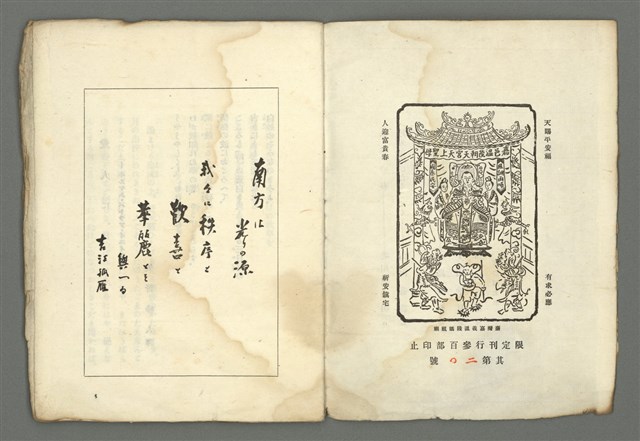 天賜平安福
人迎富貴春
嘉邑溫陵朝天宮天上聖母
有求必應
祈安鎮宅
限定刊行參百部印止
其第二の號
南方は
光の源
我々に秩序と
歡喜と
華麗とを
與へる
吉江孤雁